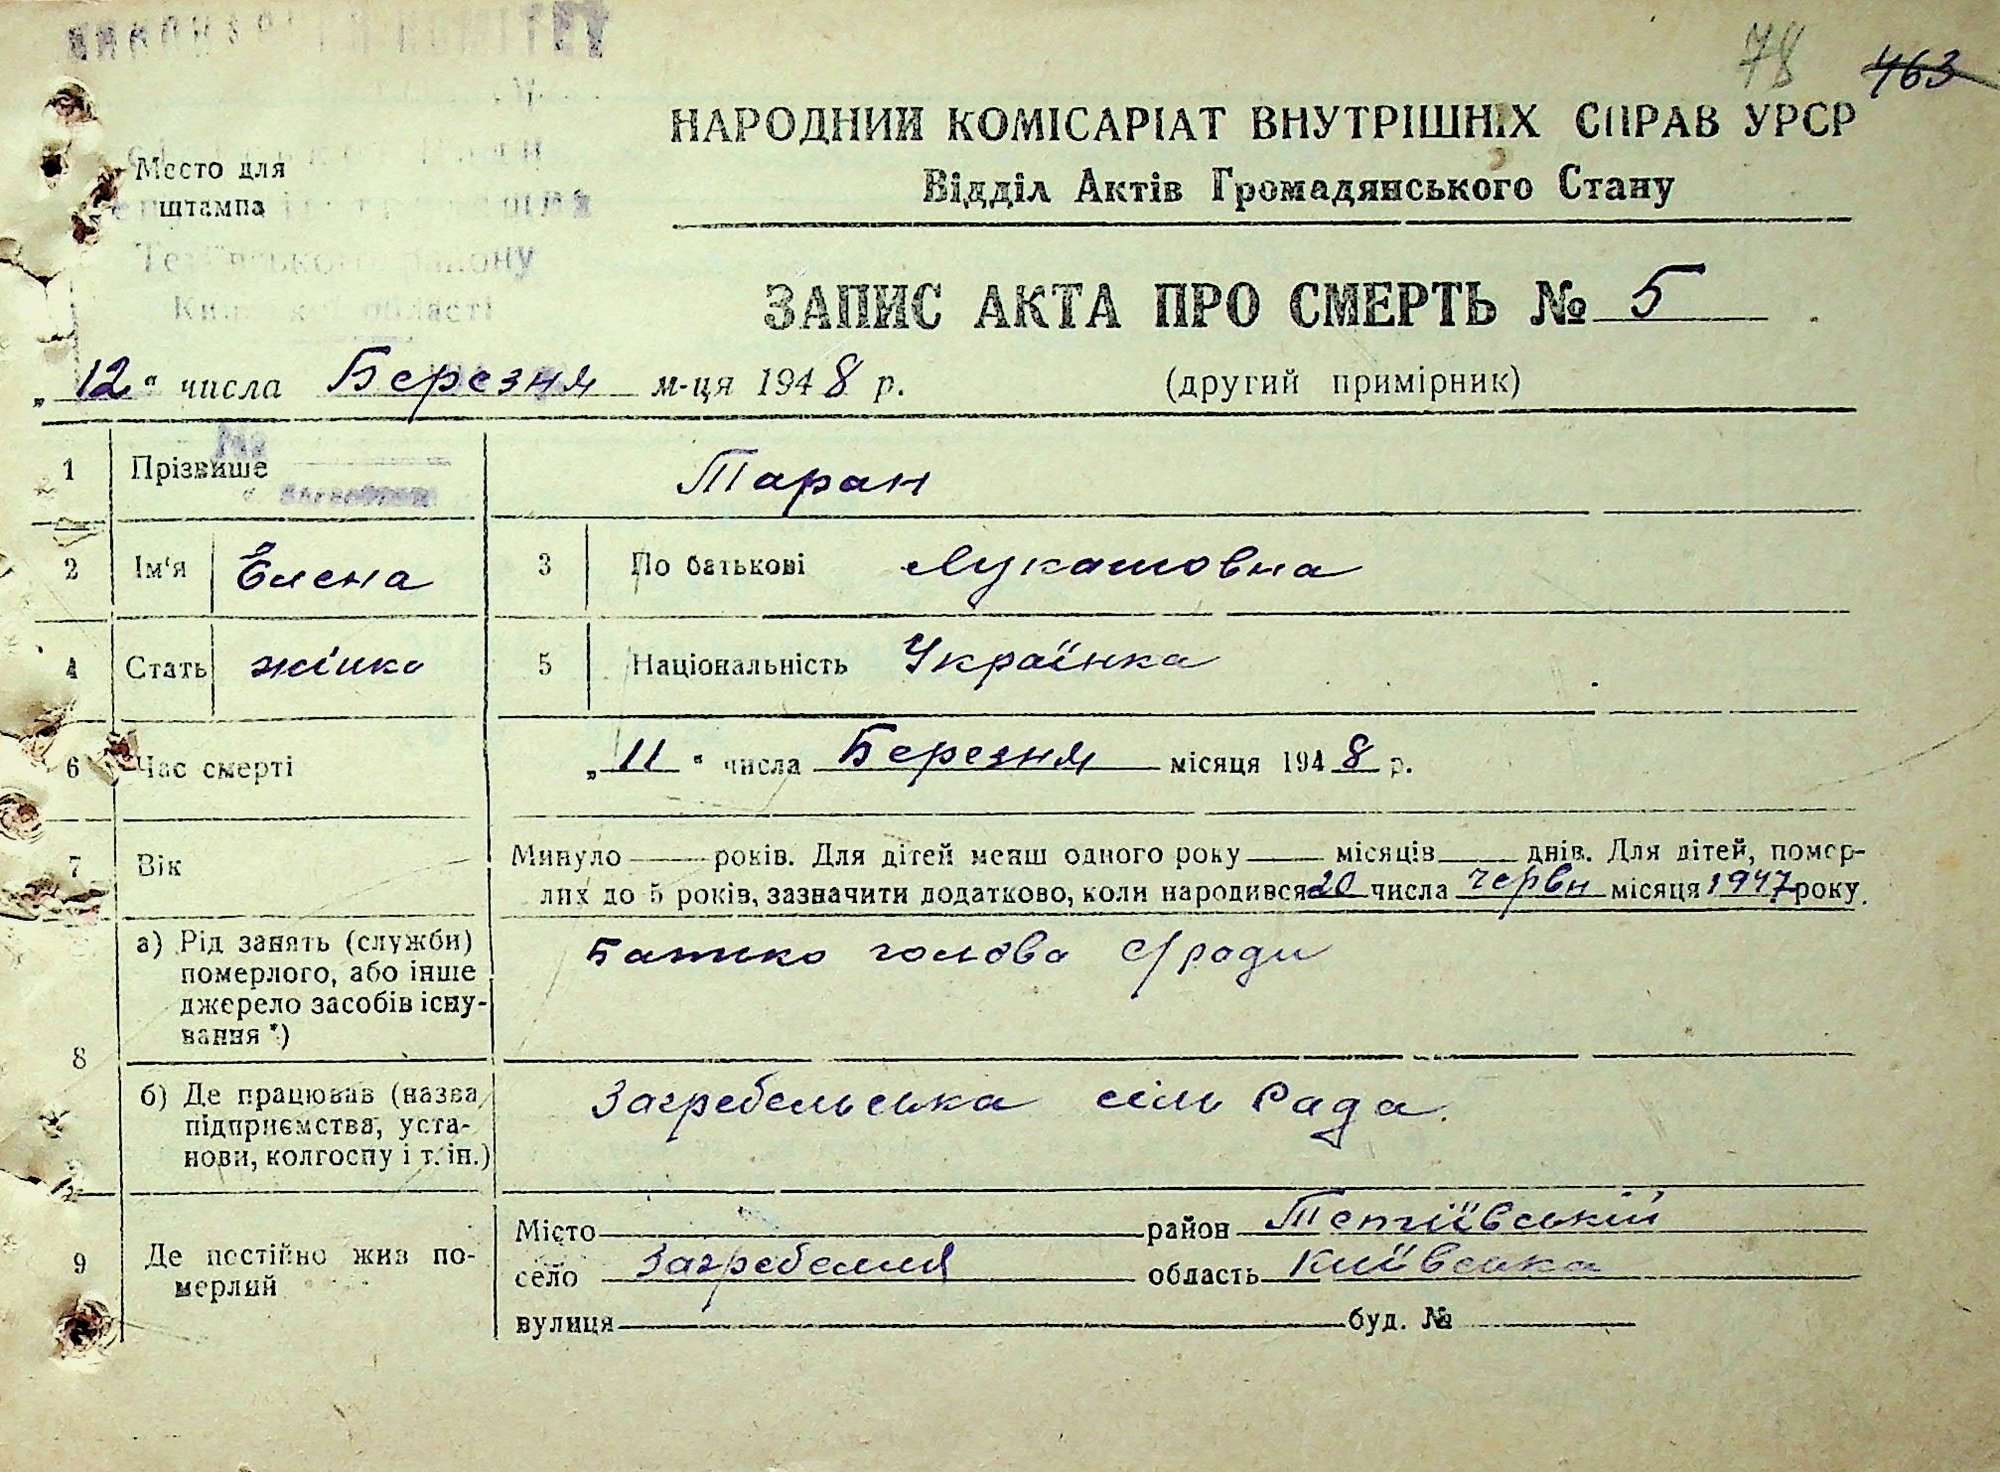 78 463
НАРОДНИЙ КОМІСАРІАТ ВНУТРІШНІХ СПРАВ УРСР
Место для
штампа
Відділ Актів Громадянського Стану
району
області
ЗАПИС АКТА ПРО СМЕРТЬ № 5
„12“ числа Березня м-ця 1948 р. (другий примірник)
1 Прізвише Таран
2 Ім'я Елена 3 По батькові Лукашовна
4 Стать жінка 5 Національність Українка
6 Час смерті „11“ числа Березня місяця 1948 р.
7 Вік Минуло — років. Для дітей менш одного року — місяців — днів. Для дітей, помер-
лих до 5 років, зазначити додатково, коли народився 20 числа червн місяця 1947 року.
8 а) Рід занять (служби) померлого, або інше джерело засобів існу-вання*) Батько голова с/ради
б) Де працював (назва підприємства, уста-нови, колгоспу і т. ін.) Загребельська сіль Рада.
9 Де постійно жив по-мерлий Місто — район Тетіївській
село Загребелля область Київська
вулиця — буд. №